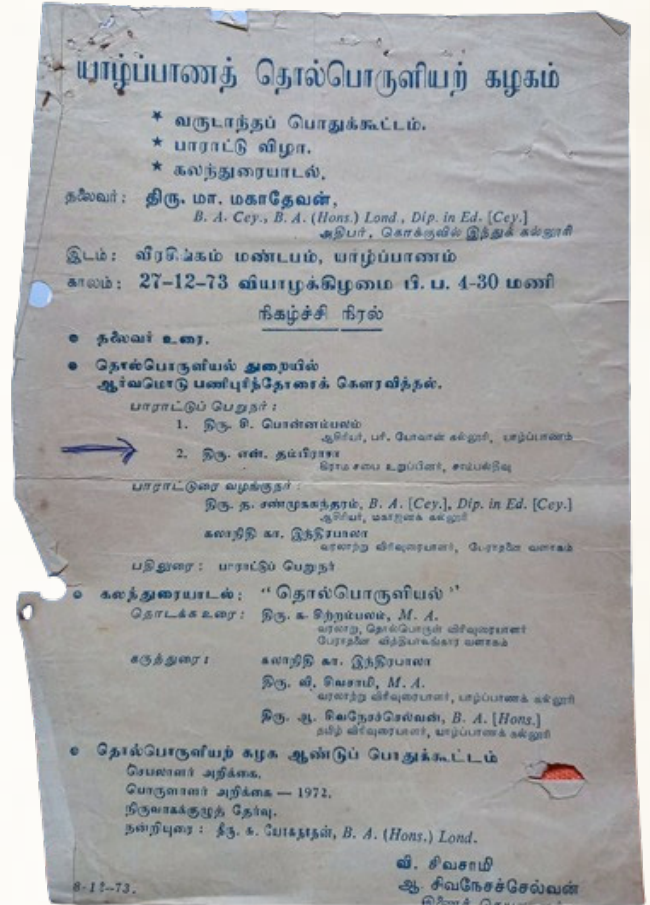 யாழ்ப்பாணத் தொல்பொருளியற் கழகம்
★ வருடாந்தப் பொதுக்கூட்டம்.
★ பாராட்டு விழா.
★ கலந்துரையாடல்.
தலைவர் : திரு. மா. மகாதேவன்,
B. A. Cey., B. A. (Hons.) Lond., Dip. in Ed. [Cey.]
அதிபர், கொக்குவில் இந்துக் கல்லூரி
இடம் : வீரசிங்கம் மண்டபம், யாழ்ப்பாணம்
காலம் : 27-12-73 வியாழக்கிழமை பி. ப. 4-30 மணி
நிகழ்ச்சி நிரல்
● தலைவர் உரை.
● தொல்பொருளியல் துறையில்
ஆர்வமொடு பணிபுரிந்தோரைக் கௌரவித்தல்.
பாராட்டுப் பெறுநர் :
1. திரு. சி. பொன்னம்பலம்
ஆசிரியர், பரி. யோவான் கல்லூரி, யாழ்ப்பாணம்
2. திரு. என். தம்பிராசா
கிராம சபை உறுப்பினர், சாம்பல்தீவு
பாராட்டுரை வழங்குநர் :
திரு. த. சண்முகசுந்தரம், B. A. [Cey.], Dip. in Ed. [Cey.]
ஆசிரியர், மகாஜனக் கல்லூரி
கலாநிதி கா. இந்திரபாலா
வரலாற்று விரிவுரையாளர், பேராதனை வளாகம்
பதிலுரை : பாராட்டுப் பெறுநர்
● கலந்துரையாடல் : "தொல்பொருளியல்"
தொடக்க உரை : திரு. சி. க. சிற்றம்பலம், M. A.
வரலாறு, தொல்பொருள் விரிவுரையாளர்
பேராதனை வித்தியாலங்கார வளாகம்
கருத்துரை : கலாநிதி கா. இந்திரபாலா
திரு. வி. சிவசாமி, M. A.
வரலாற்று விரிவுரையாளர், யாழ்ப்பாணக் கல்லூரி
திரு. ஆ. சிவநேசச்செல்வன், B. A. [Hons.]
தமிழ் விரிவுரையாளர், யாழ்ப்பாணக் கல்லூரி
● தொல்பொருளியற் கழக ஆண்டுப் பொதுக்கூட்டம்
செயலாளர் அறிக்கை.
பொருளாளர் அறிக்கை — 1972.
நிருவாகக்குழுத் தேர்வு.
நன்றியுரை : திரு. க. யோகநாதன், B. A. (Hons.) Lond.
வி. சிவசாமி
8-12-73. ஆ. சிவநேசச்செல்வன்